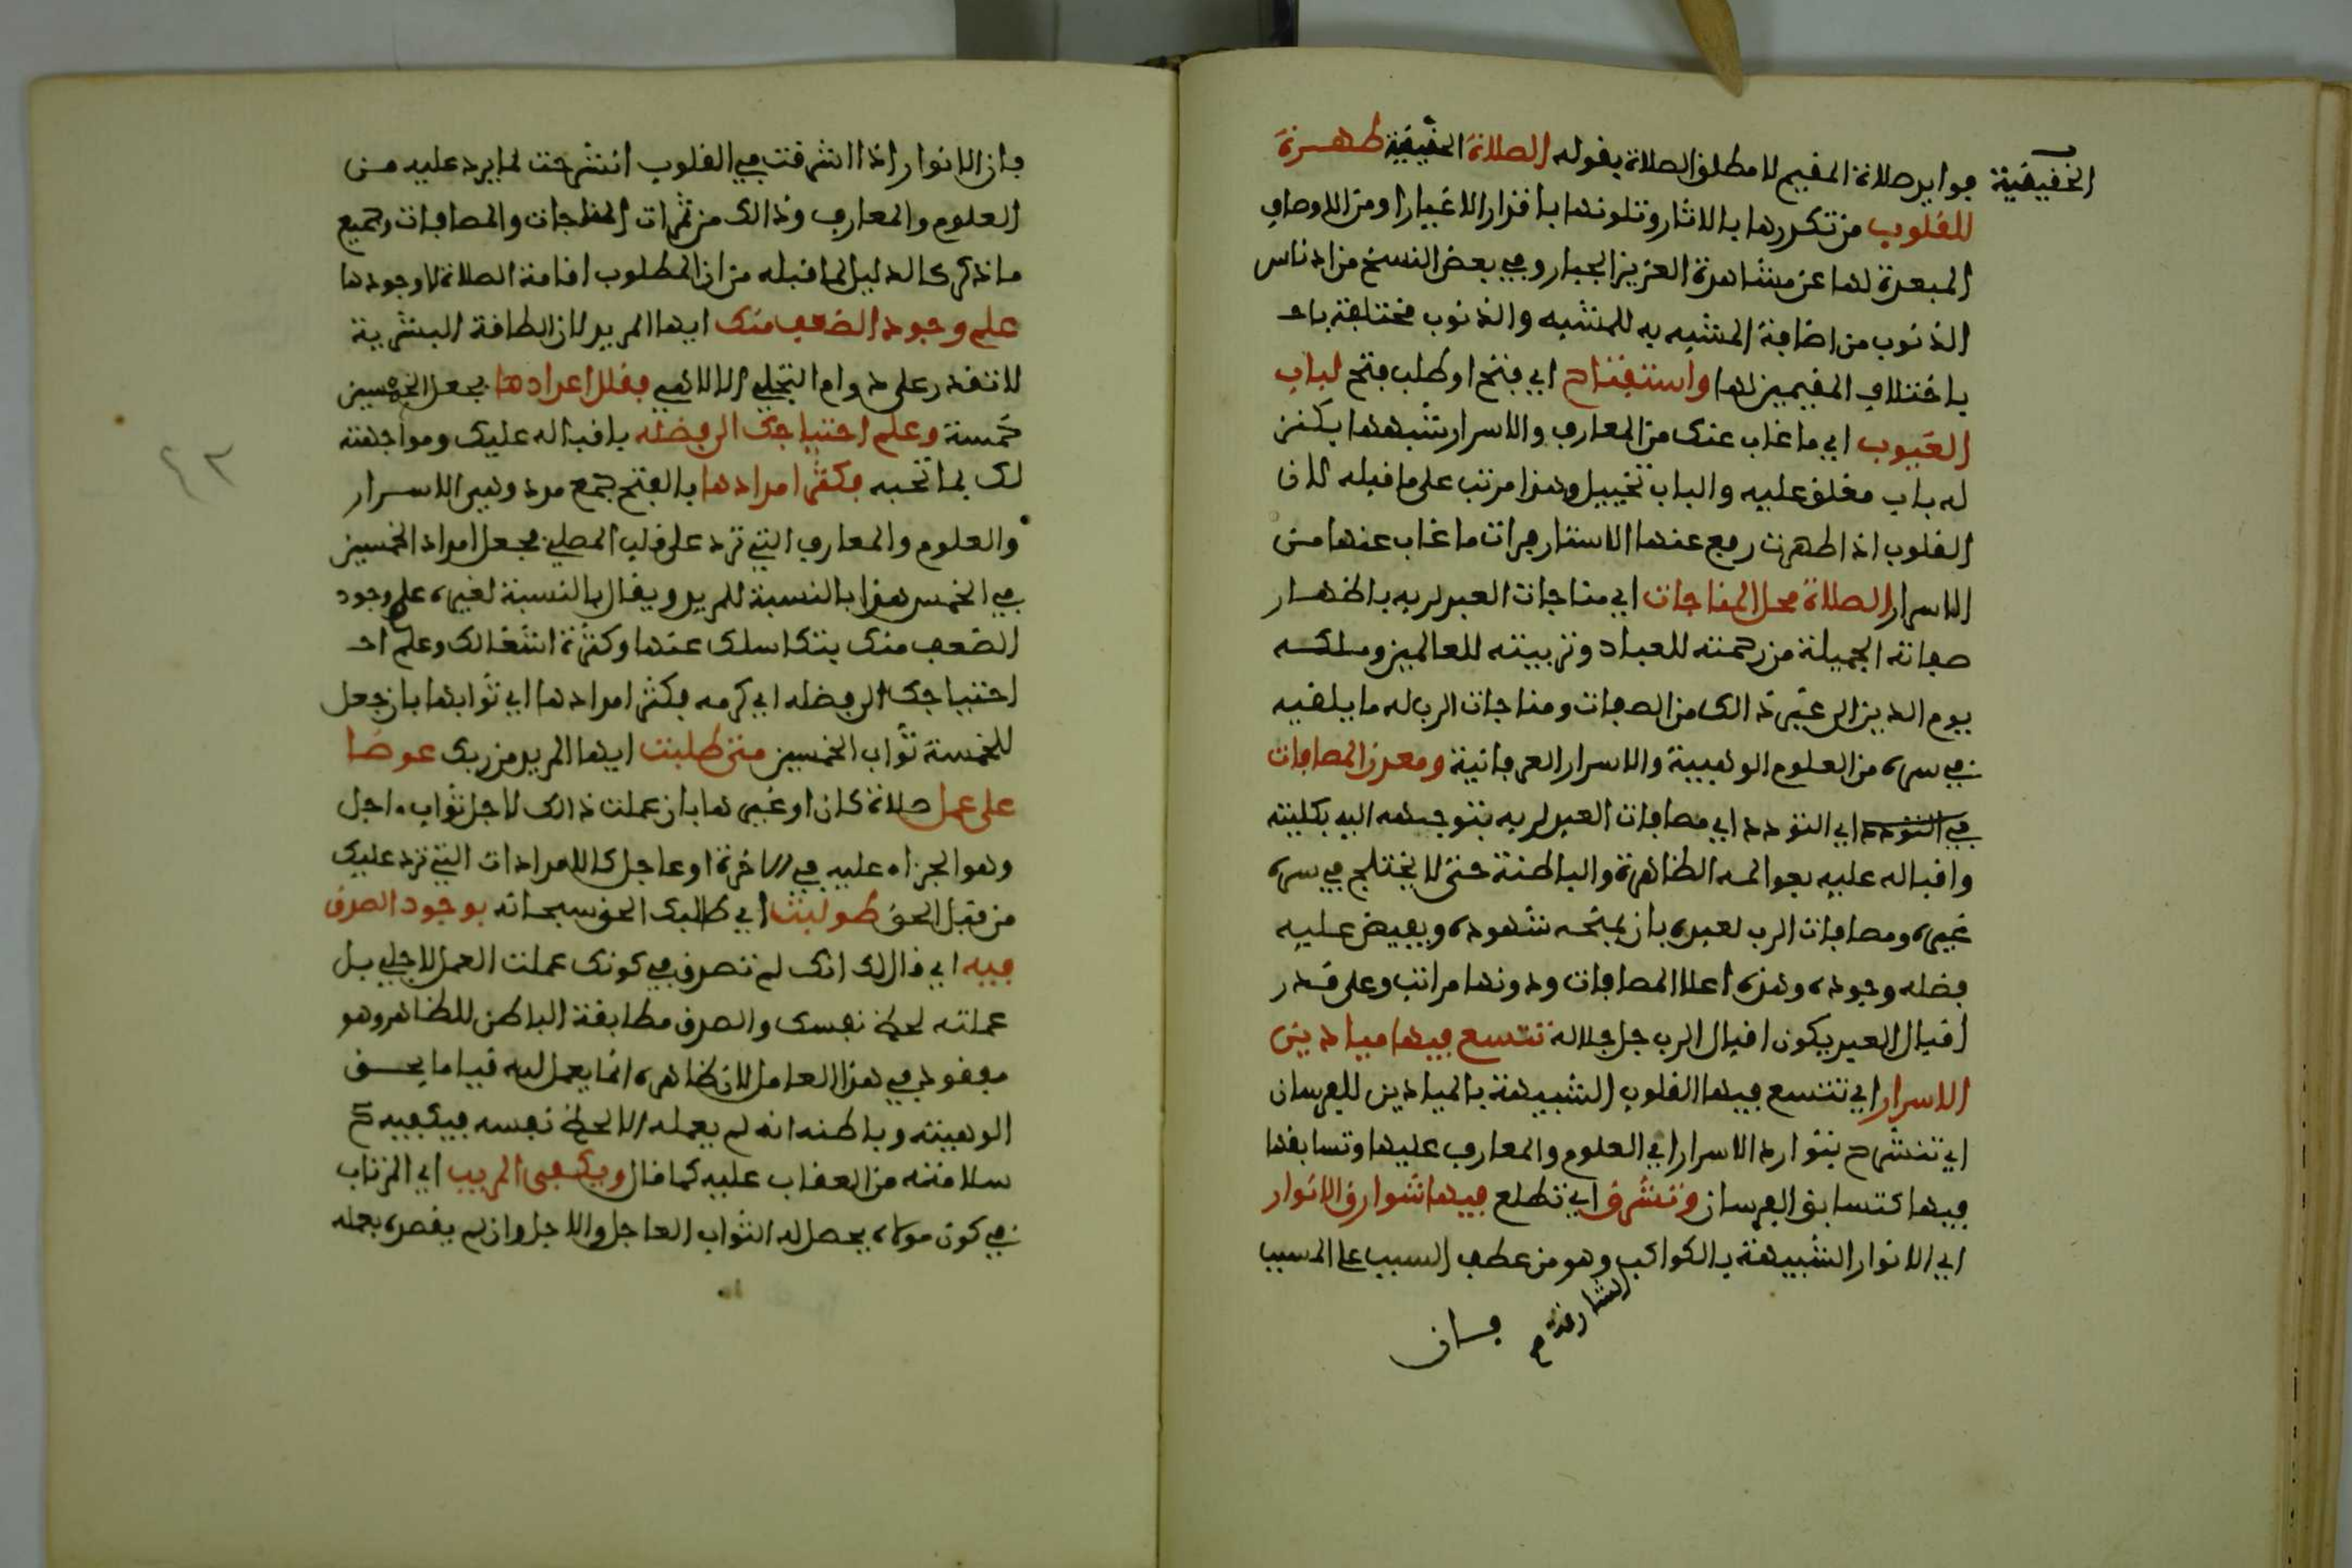 الحقيقية فوايد صلاة المقيم لا مطلق الصلاة بقوله الصلاة الحقيقية طهرة
للقلوب من تكدرها بالاثار وتلونها باقذار الاغيار او من الاوصاف
المبعدة لها عن مشاهدة العزيز الجبار وفي بعض النسخ من ادناس
الذنوب من اضافة المشبه به للمشبه والذنوب مختلفة با
باختلاف المقيمين لها واستفتاح اي فتح او طلب فتح لباب
الغيوب اي ما غاب عنك من المعارف والاسرار شبهها بكنز
له باب مغلق عليه والباب تخييل وهذا مرتب على ما قبله لان
القلوب اذا طهرت رفع عنها الاستار فرات ما غاب عنها من
الاسرار الصلاة محل المناجات اي مناجات العبد لربه باظهار
صفاته الجميلة من رحمته للعباد وتربيته للعالمين وملكه
يوم الدين الى غير ذالك من الصفات ومناجات الرب له ما يلقيه
في سره من العلوم الوهبية والاسرار العرفانية ومعدن المصافات
في التودد اي التودد اي مصافات العبد لربه بتوجهه اليه بكليته
واقباله عليه بعوالمه الظاهرة والباطنة حتى لا يختلج في سره
غيره ومصافات الرب لعبده بان يمنحه شهوده ويفيض عليه
فضله وجوده وهذه اعلا المصافات ودونها مراتب وعلى قدر
اقبال العبد يكون اقبال الرب جل جلاله تتسع فيها ميادين
الاسرار اي تتسع فيها القلوب الشبيهة بالميادين للفرسان
اي تنشرح بتوارد الاسرار اي العلوم والمعارف عليها وتسابقها
فيها كتسابق الفرسان وتشرق اي تطلع فيها شوارق الانوار
اي الانوار الشبيهة بالكواكب وهو من عطف السبب على المسبب
الشارقة
فان
فان الانوار اذا اشرقت في القلوب انشرحت لما يرد عليه من
العلوم والمعارف وذالك من ثمرات المناجات والمصافات وجميع
ما ذكر كالدليل لما قبله من ان المطلوب اقامة الصلاة لا وجودها
علم وجود الضعف منك ايها المريد لان الطاقة البشرية
لا تقدر على دوام التجلي الالاهي فقلل اعدادها بجعل الخمسين
خمسة وعلم احتياجك الى فضله باقباله عليك ومواجهته
لك بما تحبه فكثر امدادها بالفتح جمع مدد وهي الاسرار
والعلوم والمعارف التي ترد على قلب المصلي فجعل امداد الخمسين
في الخمس هذا بالنسبة للمريد ويقال بالنسبة لغيره علم وجود
الضعف منك بتكاسلك عنها وكثرة اشغالك وعلم ا
احتياجك الى فضله اي كرمه فكثر امدادها اي ثوابها بان جعل
للخمسة ثواب الخمسين متى طلبت ايها المريد من ربك عوضا
على عمل صلاة كان او غيرها بان عملت ذالك لاجل ثواب اجل
وهو الجزاء عليه في الاخرة او عاجل كالامدادات التي ترد عليك
من قبل الحق طولبت اي طالبك الحق سبحانه بوجود الصدق
فيه اي قال لك انك لم تصدق في كونك عملت العمل لاجلي بل
عملته لحظ نفسك والصدق مطابقة الباطن للظاهر وهو
مفقود في هذا العامل لان ظاهره انما يعمل لله قياما بحق
الوهيته وباطنه انه لم يعمله الا لحظ نفسه فيكفيه ح
سلامته من العقاب عليه كما قال ويكفى المريب اي المرتاب
في كون مولاه يحصل له الثواب العاجل والاجل وان لم يقصده بعمله
٤٢